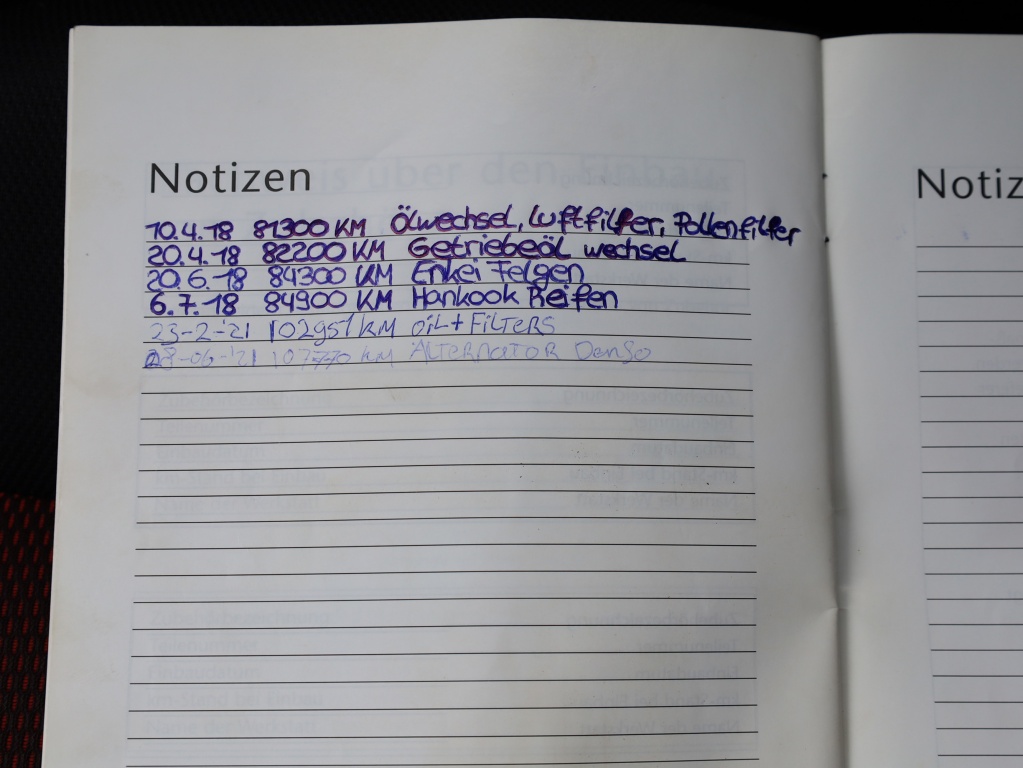 Notizen
10.4.18 81300 KM Ölwechsel, Luftfilter, Pollenfilter
20.4.18 82200 KM Getriebeöl wechsel
20.6.18 84300 KM Enkei Felgen
6.7.18 84900 KM Hankook Reifen
23-2-'21 102951 KM OIL + FILTERS
-06-'21 107770 KM ALTERNATOR DENSO
Notiz